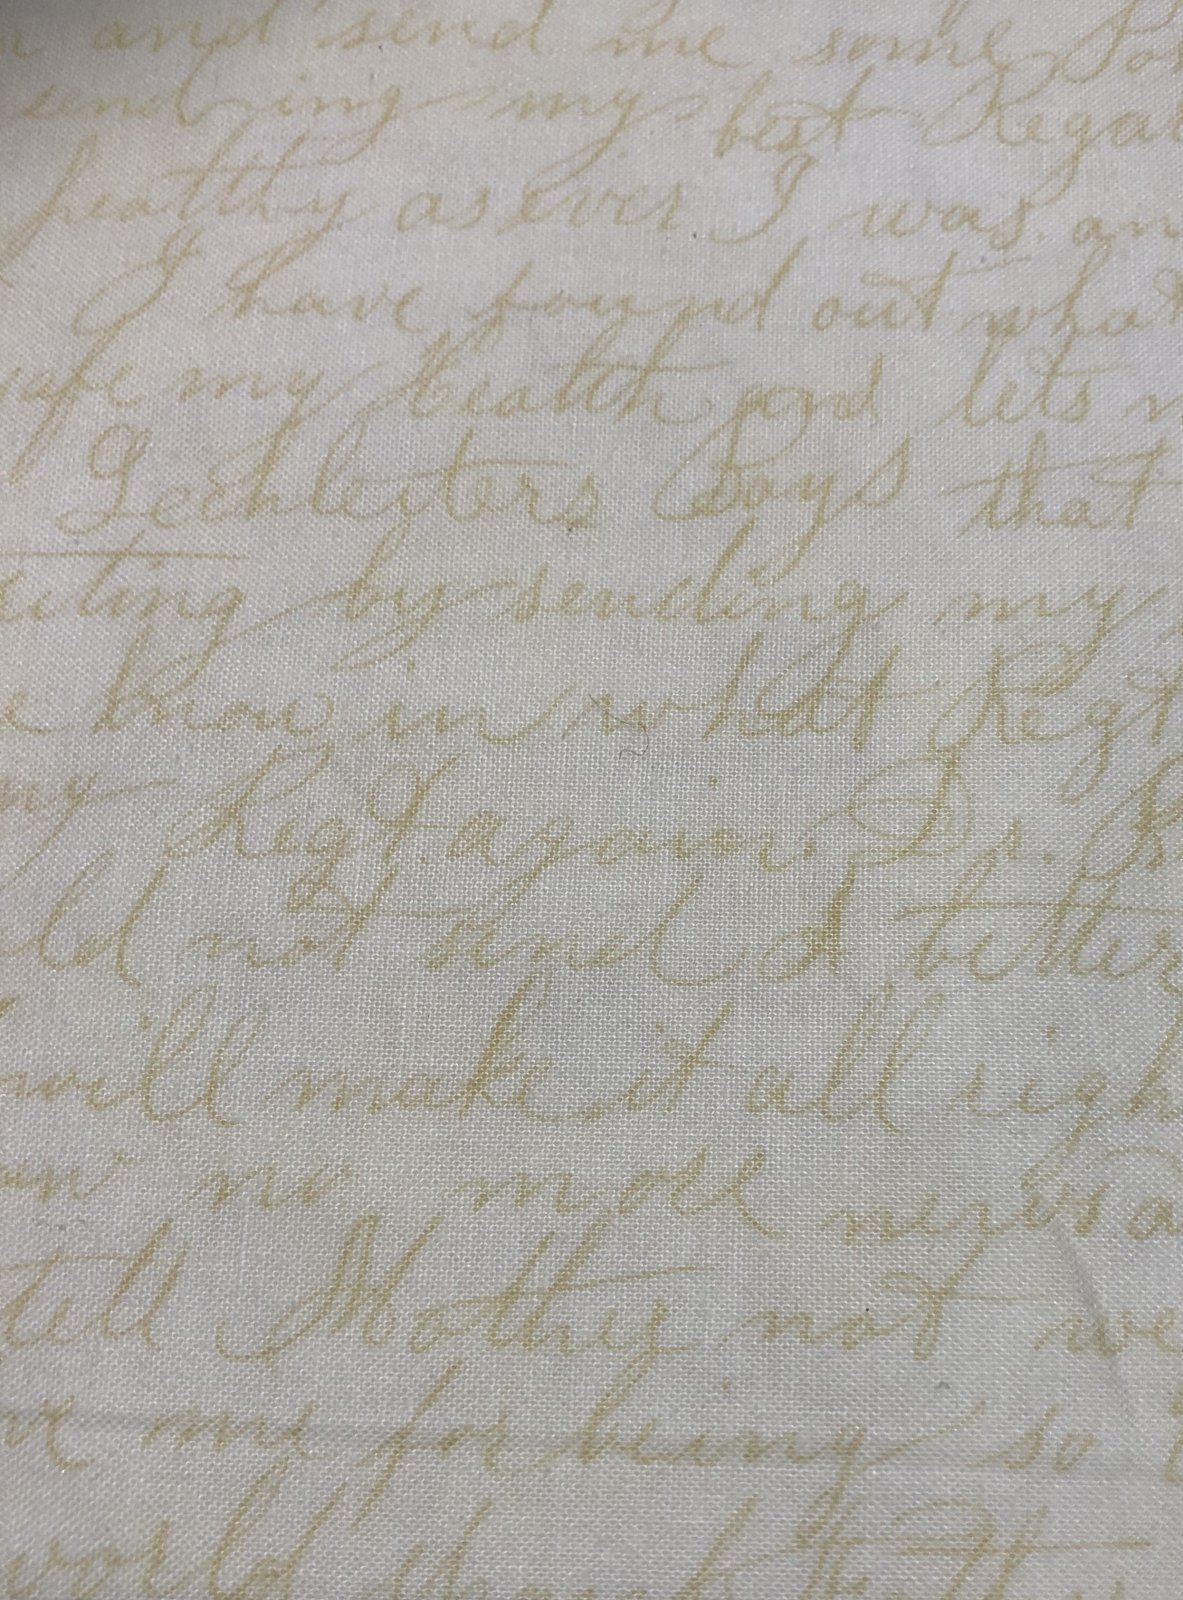 and send me some
sending my best Regar
healthy as ever I was an
I have found out what
my Health and lets
Lechleiters Boys that
by sending my
know in what Regt
my Regt again Ps.
not send I better
will make it all righ
no more news a
tell Mothey not we
me for being so
world